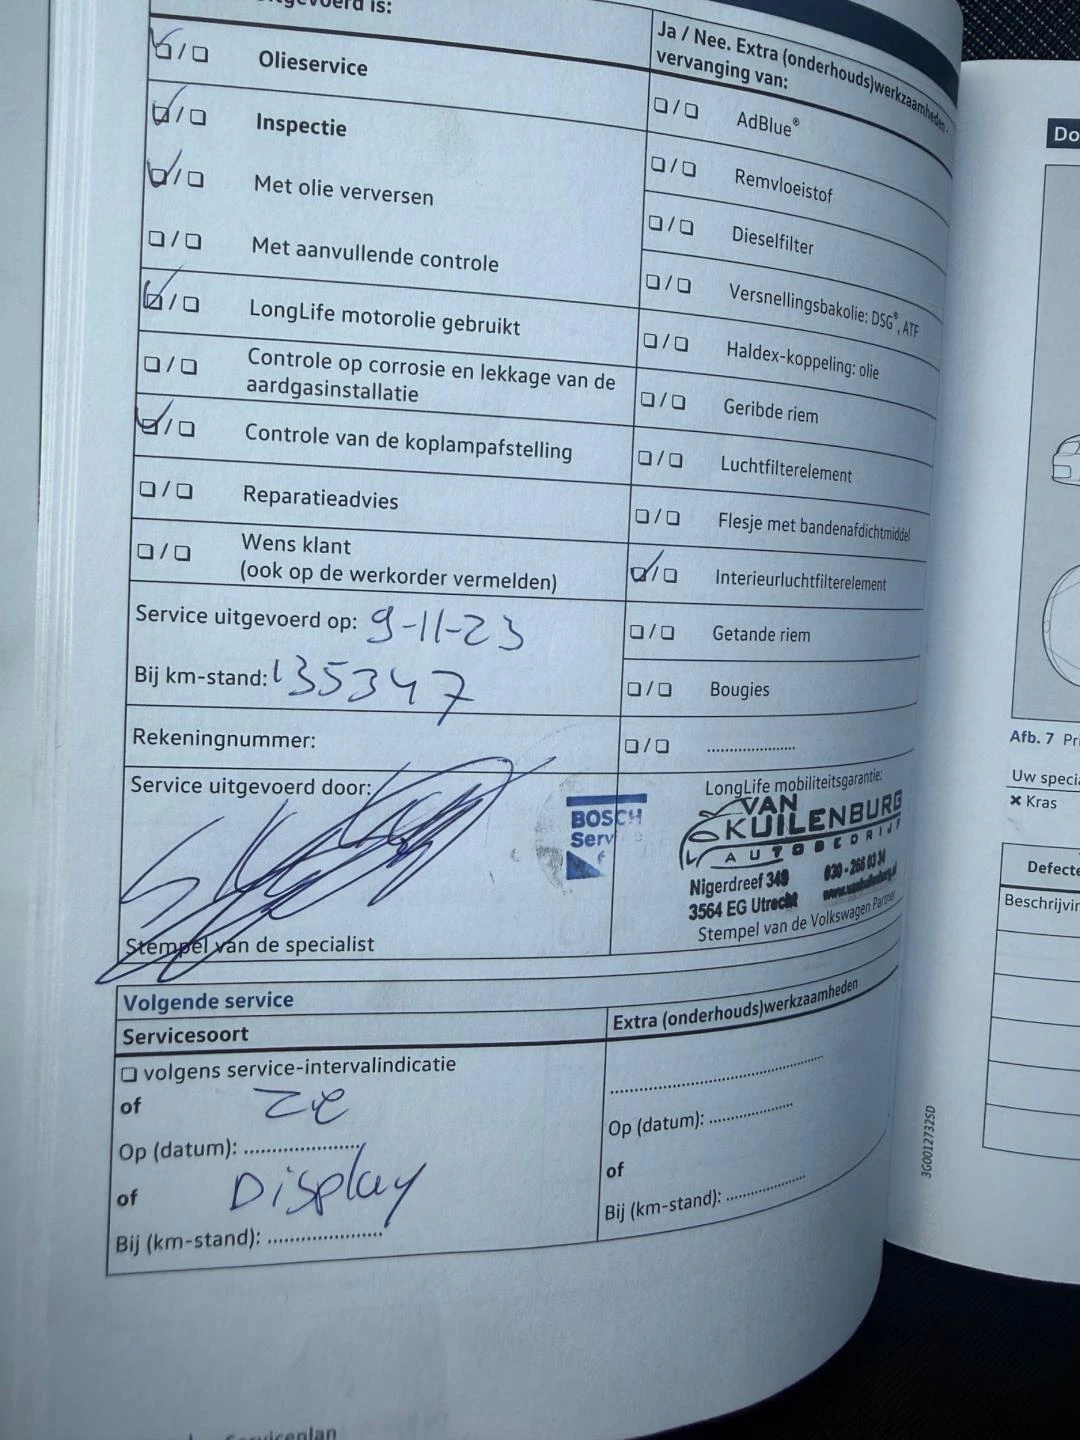 is:
☑ / ☐ Olieservice
☑ / ☐ Inspectie
☑ / ☐ Met olie verversen
☐ / ☐ Met aanvullende controle
☑ / ☐ LongLife motorolie gebruikt
☐ / ☐ Controle op corrosie en lekkage van de
aardgasinstallatie
☑ / ☐ Controle van de koplampafstelling
☐ / ☐ Reparatieadvies
☐ / ☐ Wens klant
(ook op de werkorder vermelden)
Service uitgevoerd op: 9-11-23
Bij km-stand: 135347
Rekeningnummer:
Service uitgevoerd door:
BOSCH
Service
Stempel van de specialist
Ja / Nee. Extra (onderhouds)werkzaamheden -
vervanging van:
☐ / ☐ AdBlue®
☐ / ☐ Remvloeistof
☐ / ☐ Dieselfilter
☐ / ☐ Versnellingsbakolie: DSG®, ATF
☐ / ☐ Haldex-koppeling: olie
☐ / ☐ Geribde riem
☐ / ☐ Luchtfilterelement
☐ / ☐ Flesje met bandenafdichtmiddel
☑ / ☐ Interieurluchtfilterelement
☐ / ☐ Getande riem
☐ / ☐ Bougies
☐ / ☐ .....................
LongLife mobiliteitsgarantie:
VAN
KUILENBURG
AUTOBEDRIJF
Nigerdreef 349 030 - 266 03 34
3564 EG Utrecht www.vankuilenburg.nl
Stempel van de Volkswagen Partner
Volgende service
Servicesoort
☐ volgens service-intervalindicatie
of
Zie
Op (datum): .....................
of
Display
Bij (km-stand): .....................
Extra (onderhouds)werkzaamheden
.......................................
Op (datum): ...............
of
Bij (km-stand): ...............
3G0012732SD
Serviceplan
Do
Afb. 7 Pri
Uw specia
× Kras
Defecte
Beschrijvin